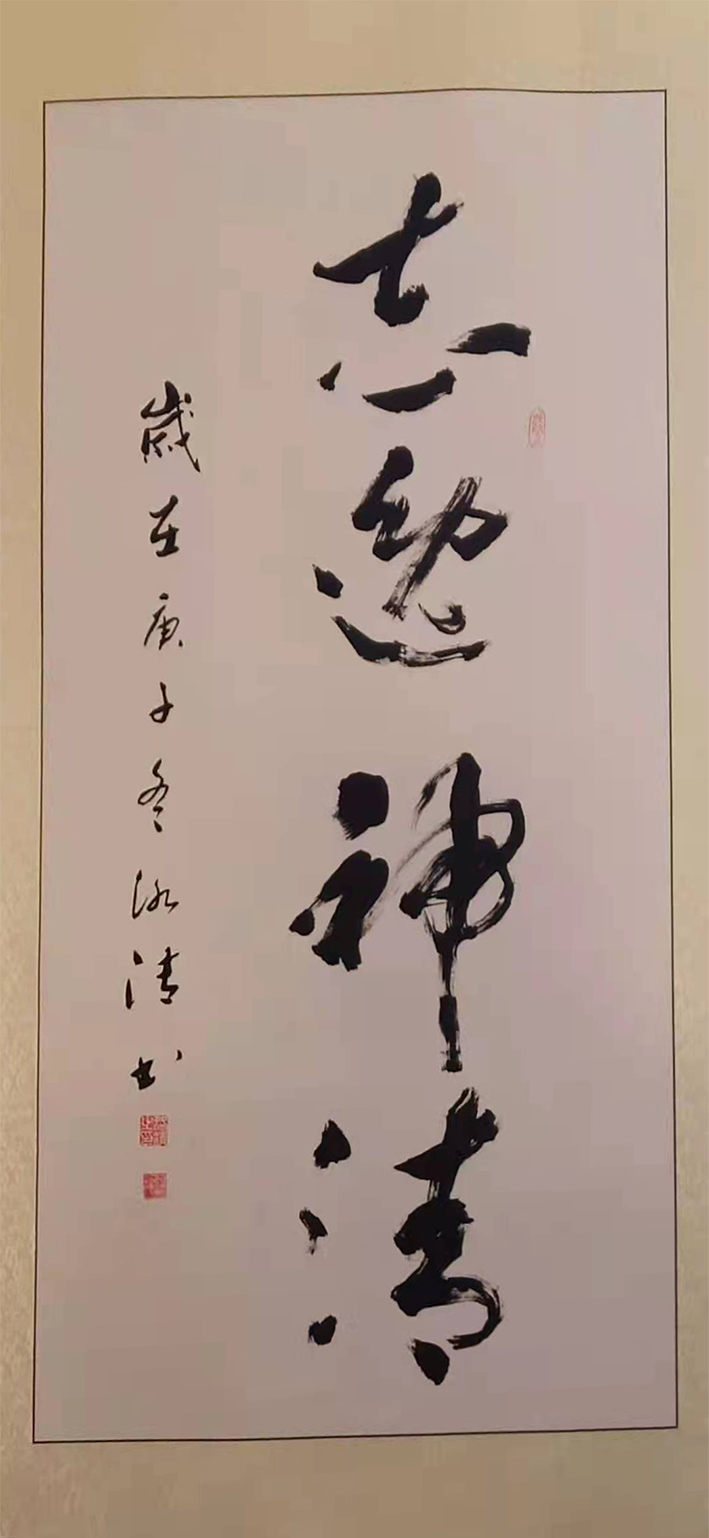 志逸神清
歲在庚子冬泳清书